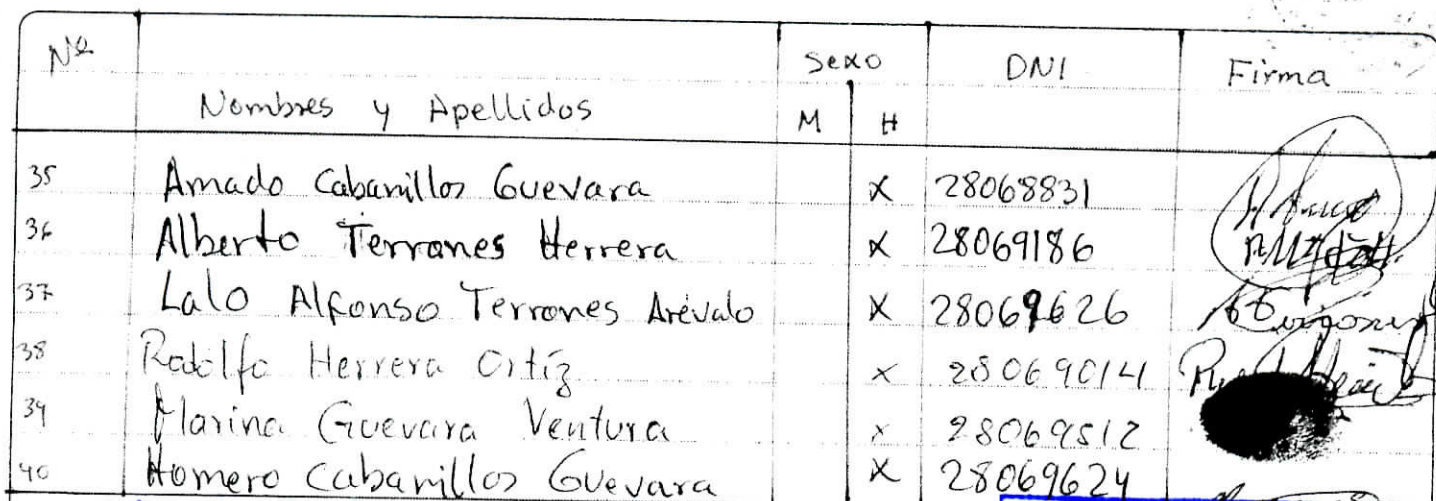 Nº Nombres y Apellidos Sexo M H DNI Firma
35 Amado Cabanillos Guevara X 28068831
36 Alberto Terrones Herrera X 28069186
37 Lalo Alfonso Terrones Arévalo X 28069626
38 Rodolfo Herrera Ortíz X 28069014
39 Marina Guevara Ventura X 28069512
40 Homero Cabanillos Guevara X 28069624